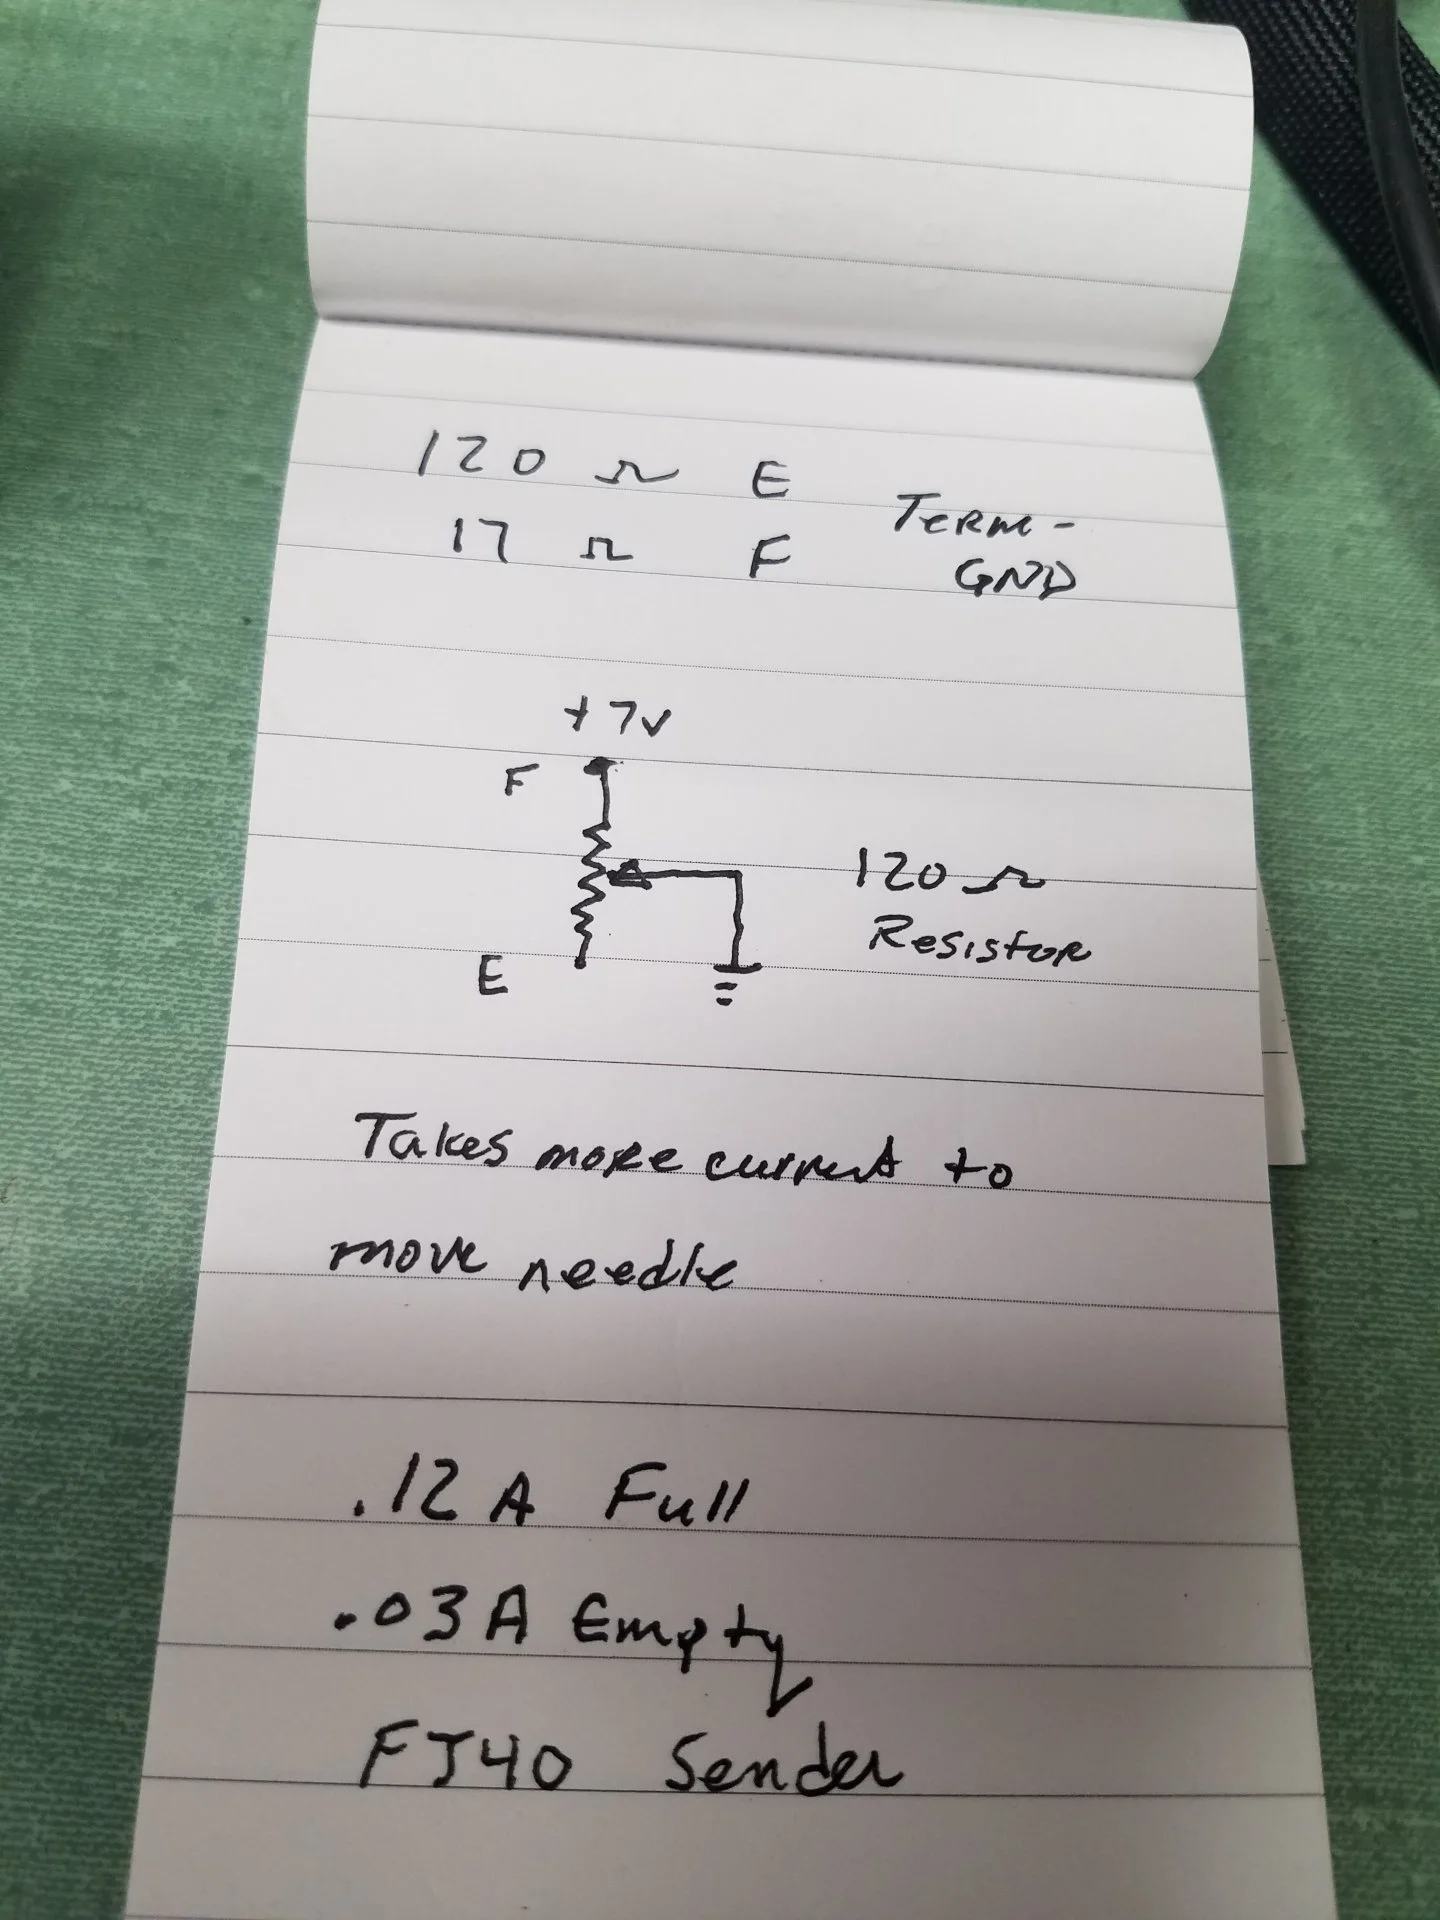 120 Ω E
17 Ω F
Term-
GND
+7V
F
120 Ω
Resistor
E
Takes more current to
move needle
.12 A Full
.03 A Empty
FJ40 Sender